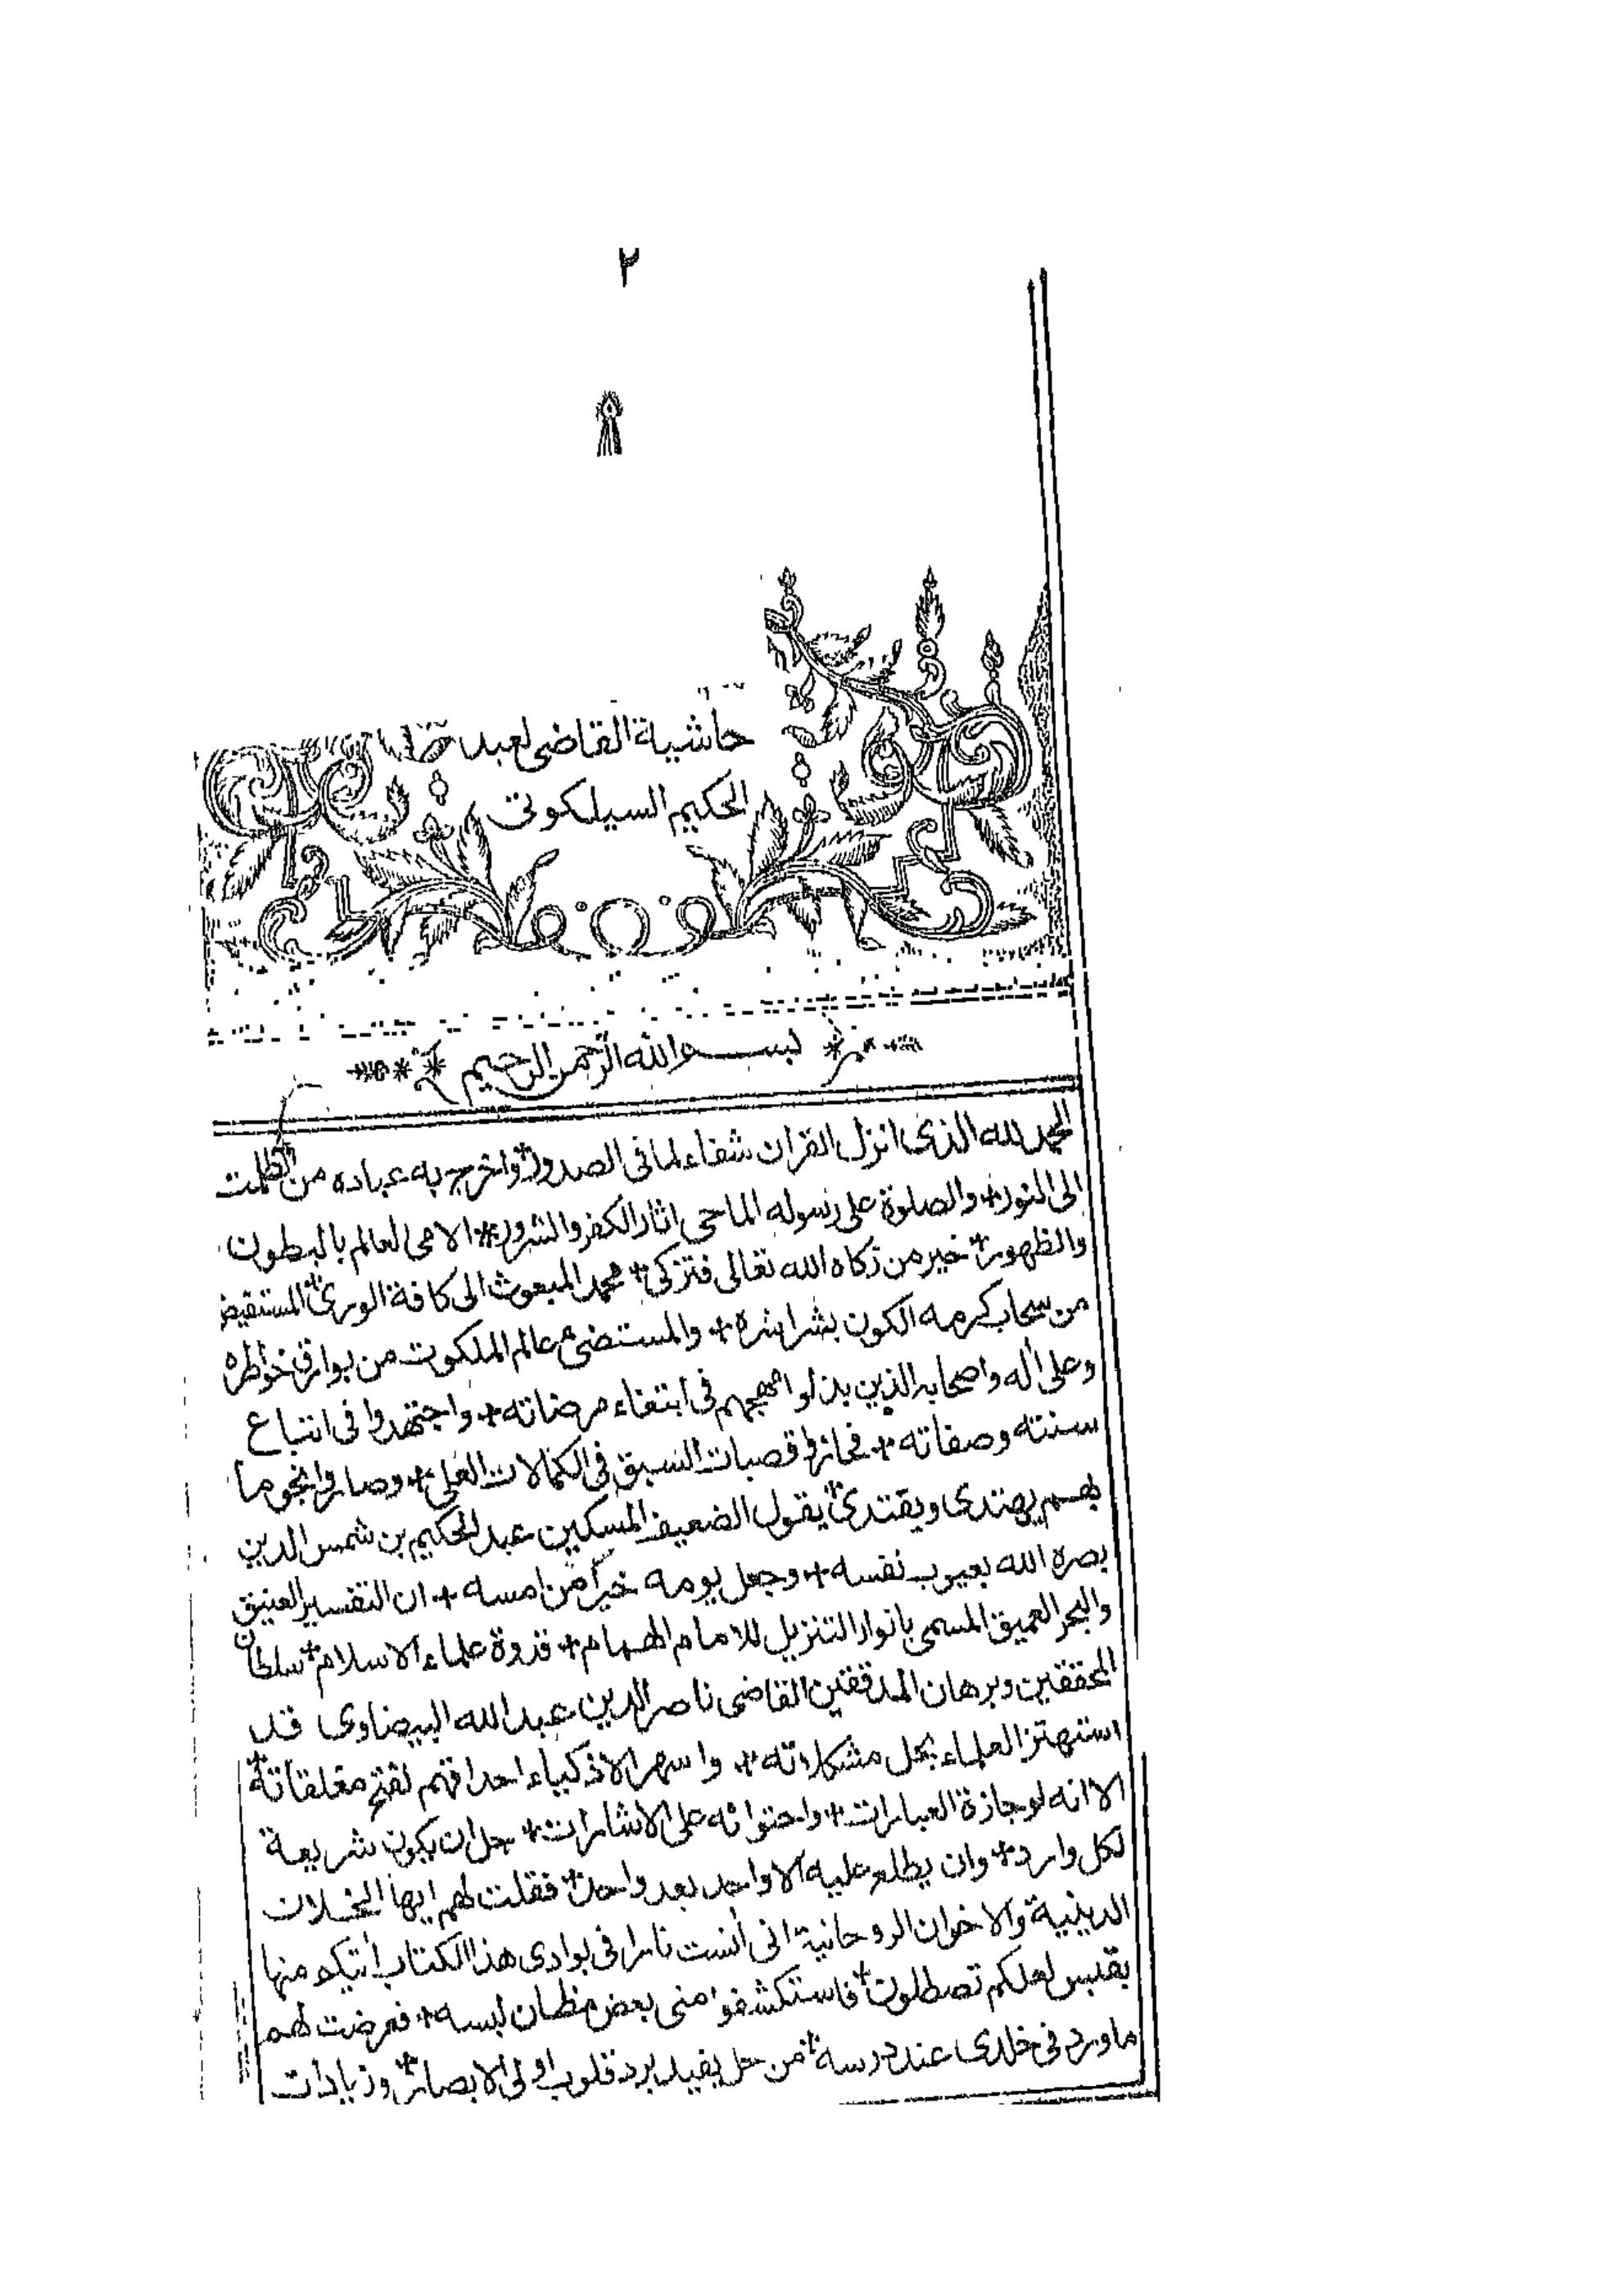 ٢
حاشية القاضى لعبد
الحكيم السيلكوتى
بسم الله الرحمن الرحيم
الحمد لله الذى انزل القران شفاء لما فى الصدور * واخرج به عباده من الظلمت
الى النور * والصلوة على رسوله الماحى اثار الكفر والشرور * الامى العالم بالبطون
والظهور * خير من زكاه الله تعالى فتزكى * محمد المبعوث الى كافة الورى * المستفيض
من سحاب كرمه الكون بشراشره * والمستضئ عالم الملكوت من بوارق خواطره
وعلى أله واصحابه الذين بذلوا مهجهم فى ابتغاء مرضاته * واجتهدوا فى اتباع
سنته وصفاته * فحازوا قصبات السبق فى الكمالات العلى * وصاروا نجوما
بهم يهتدى ويقتدى * يقول الضعيف المسكين عبد الحكيم بن شمس الدين
بصره الله بعيوب نفسه * وجعل يومه خيرا من امسه * ان التفسير العنيق
والبحر العميق المسمى بانوار التنزيل للامام الهمام * قدوة علماء الاسلام * سلطان
المحققين وبرهان المدققين القاضى ناصر الدين عبد الله البيضاوى قد
استهتر العلماء بحل مشكلاته * واسهر الاذكياء احداقهم لفتح مغلقاته *
الا انه لوجازة العبارات * واحتوائه على الاشارات * جل ان يكون شريعة
لكل وارد * وان يطلع عليه الا واحد بعد واحد * فقلت لهم ايها الخلان
الدينية والاخوان الروحانية انى أنست نارا فى بوادى هذا الكتاب أتيكم منها
بقبس لعلكم تصطلون * فاستكشفوا منى بعض مظان لبسه * فعرضت لهم
ما ورد فى خلدى عند درسه * من حل يفيد برد قلوب اولى الابصار * وزيادات